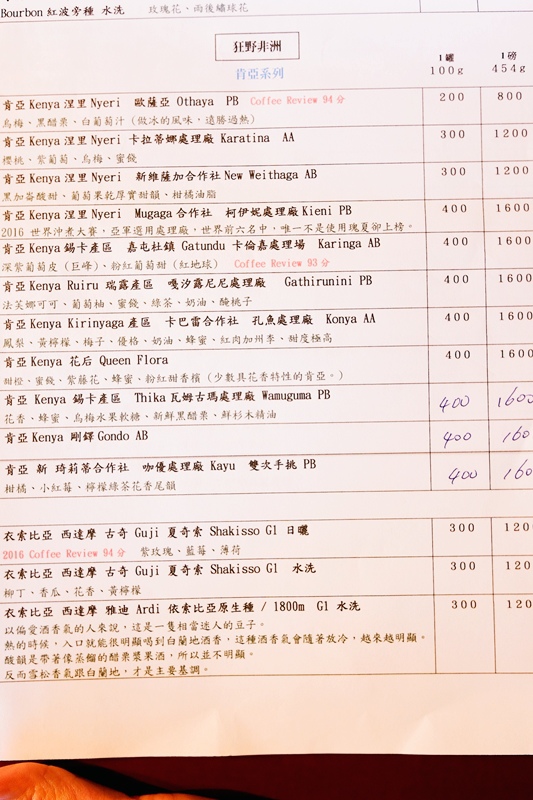 Bourbon 紅波旁種 水洗 玫瑰花、雨後繡球花
狂野非洲
肯亞系列
1罐 1磅
100g 454g
肯亞Kenya 涅里Nyeri 歐薩亞 Othaya PB Coffee Review 94分 200 800
烏梅、黑醋栗、白葡萄汁（做冰的風味，遠勝過熱）
肯亞Kenya 涅里Nyeri 卡拉蒂娜處理廠 Karatina AA 300 1200
櫻桃、紫葡萄、烏梅、蜜餞
肯亞Kenya 涅里Nyeri 新維薩加合作社New Weithaga AB 300 1200
黑加崙酸甜、葡萄果乾厚實甜韻、柑橘油脂
肯亞Kenya 涅里Nyeri Mugaga合作社 柯伊妮處理廠Kieni PB 400 1600
2016 世界沖煮大賽，亞軍選用處理廠，世界前六名中，唯一不是使用瑰夏卻上榜。
肯亞Kenya 錫卡產區 嘉屯杜鎮 Gatundu 卡倫嘉處理場 Karinga AB 400 1600
深紫葡萄皮（巨峰）、粉紅葡萄甜（紅地球） Coffee Review 93分
肯亞Kenya Ruiru 瑞露產區 嘎汐露尼尼處理廠 Gathirunini PB 400 1600
法芙娜可可、葡萄柚、蜜餞、綠茶、奶油、醃桃子
肯亞Kenya Kirinyaga產區 卡巴雷合作社 孔魚處理廠 Konya AA 400 1600
鳳梨、黃檸檬、梅子、優格、奶油、蜂蜜、紅肉加州李、甜度極高
肯亞Kenya 花后 Queen Flora 400 1600
甜橙、蜜餞、紫藤花、蜂蜜、粉紅甜香檳（少數具花香特性的肯亞。）
肯亞 Kenya 錫卡產區 Thika瓦姆古瑪處理廠 Wamuguma PB 400 1600
花香、蜂蜜、烏梅水果軟糖、新鮮黑醋栗、鮮杉木精油
肯亞Kenya 剛鐸Gondo AB 400 160
肯亞 新 琦莉蒂合作社 咖優處理廠 Kayu 雙次手挑 PB 400 160
柑橘、小紅莓、檸檬綠茶花香尾韻
衣索比亞 西達摩 古奇 Guji 夏奇索 Shakisso G1 日曬 300 120
2016 Coffee Review 94分 紫玫瑰、藍莓、薄荷
衣索比亞 西達摩 古奇 Guji 夏奇索 Shakisso G1 水洗 300 120
柳丁、香瓜、花香、黃檸檬
衣索比亞 西達摩 雅迪 Ardi 依索比亞原生種 / 1800m G1 水洗 300 120
以偏愛酒香氣的人來說，這是一隻相當迷人的豆子。
熱的時候，入口就能很明顯喝到白蘭地酒香，這種酒香氣會隨著放冷，越來越明顯。
酸韻是帶著像蒸餾的醋栗漿果酒，所以並不明顯。
反而雪松香氣跟白蘭地，才是主要基調。